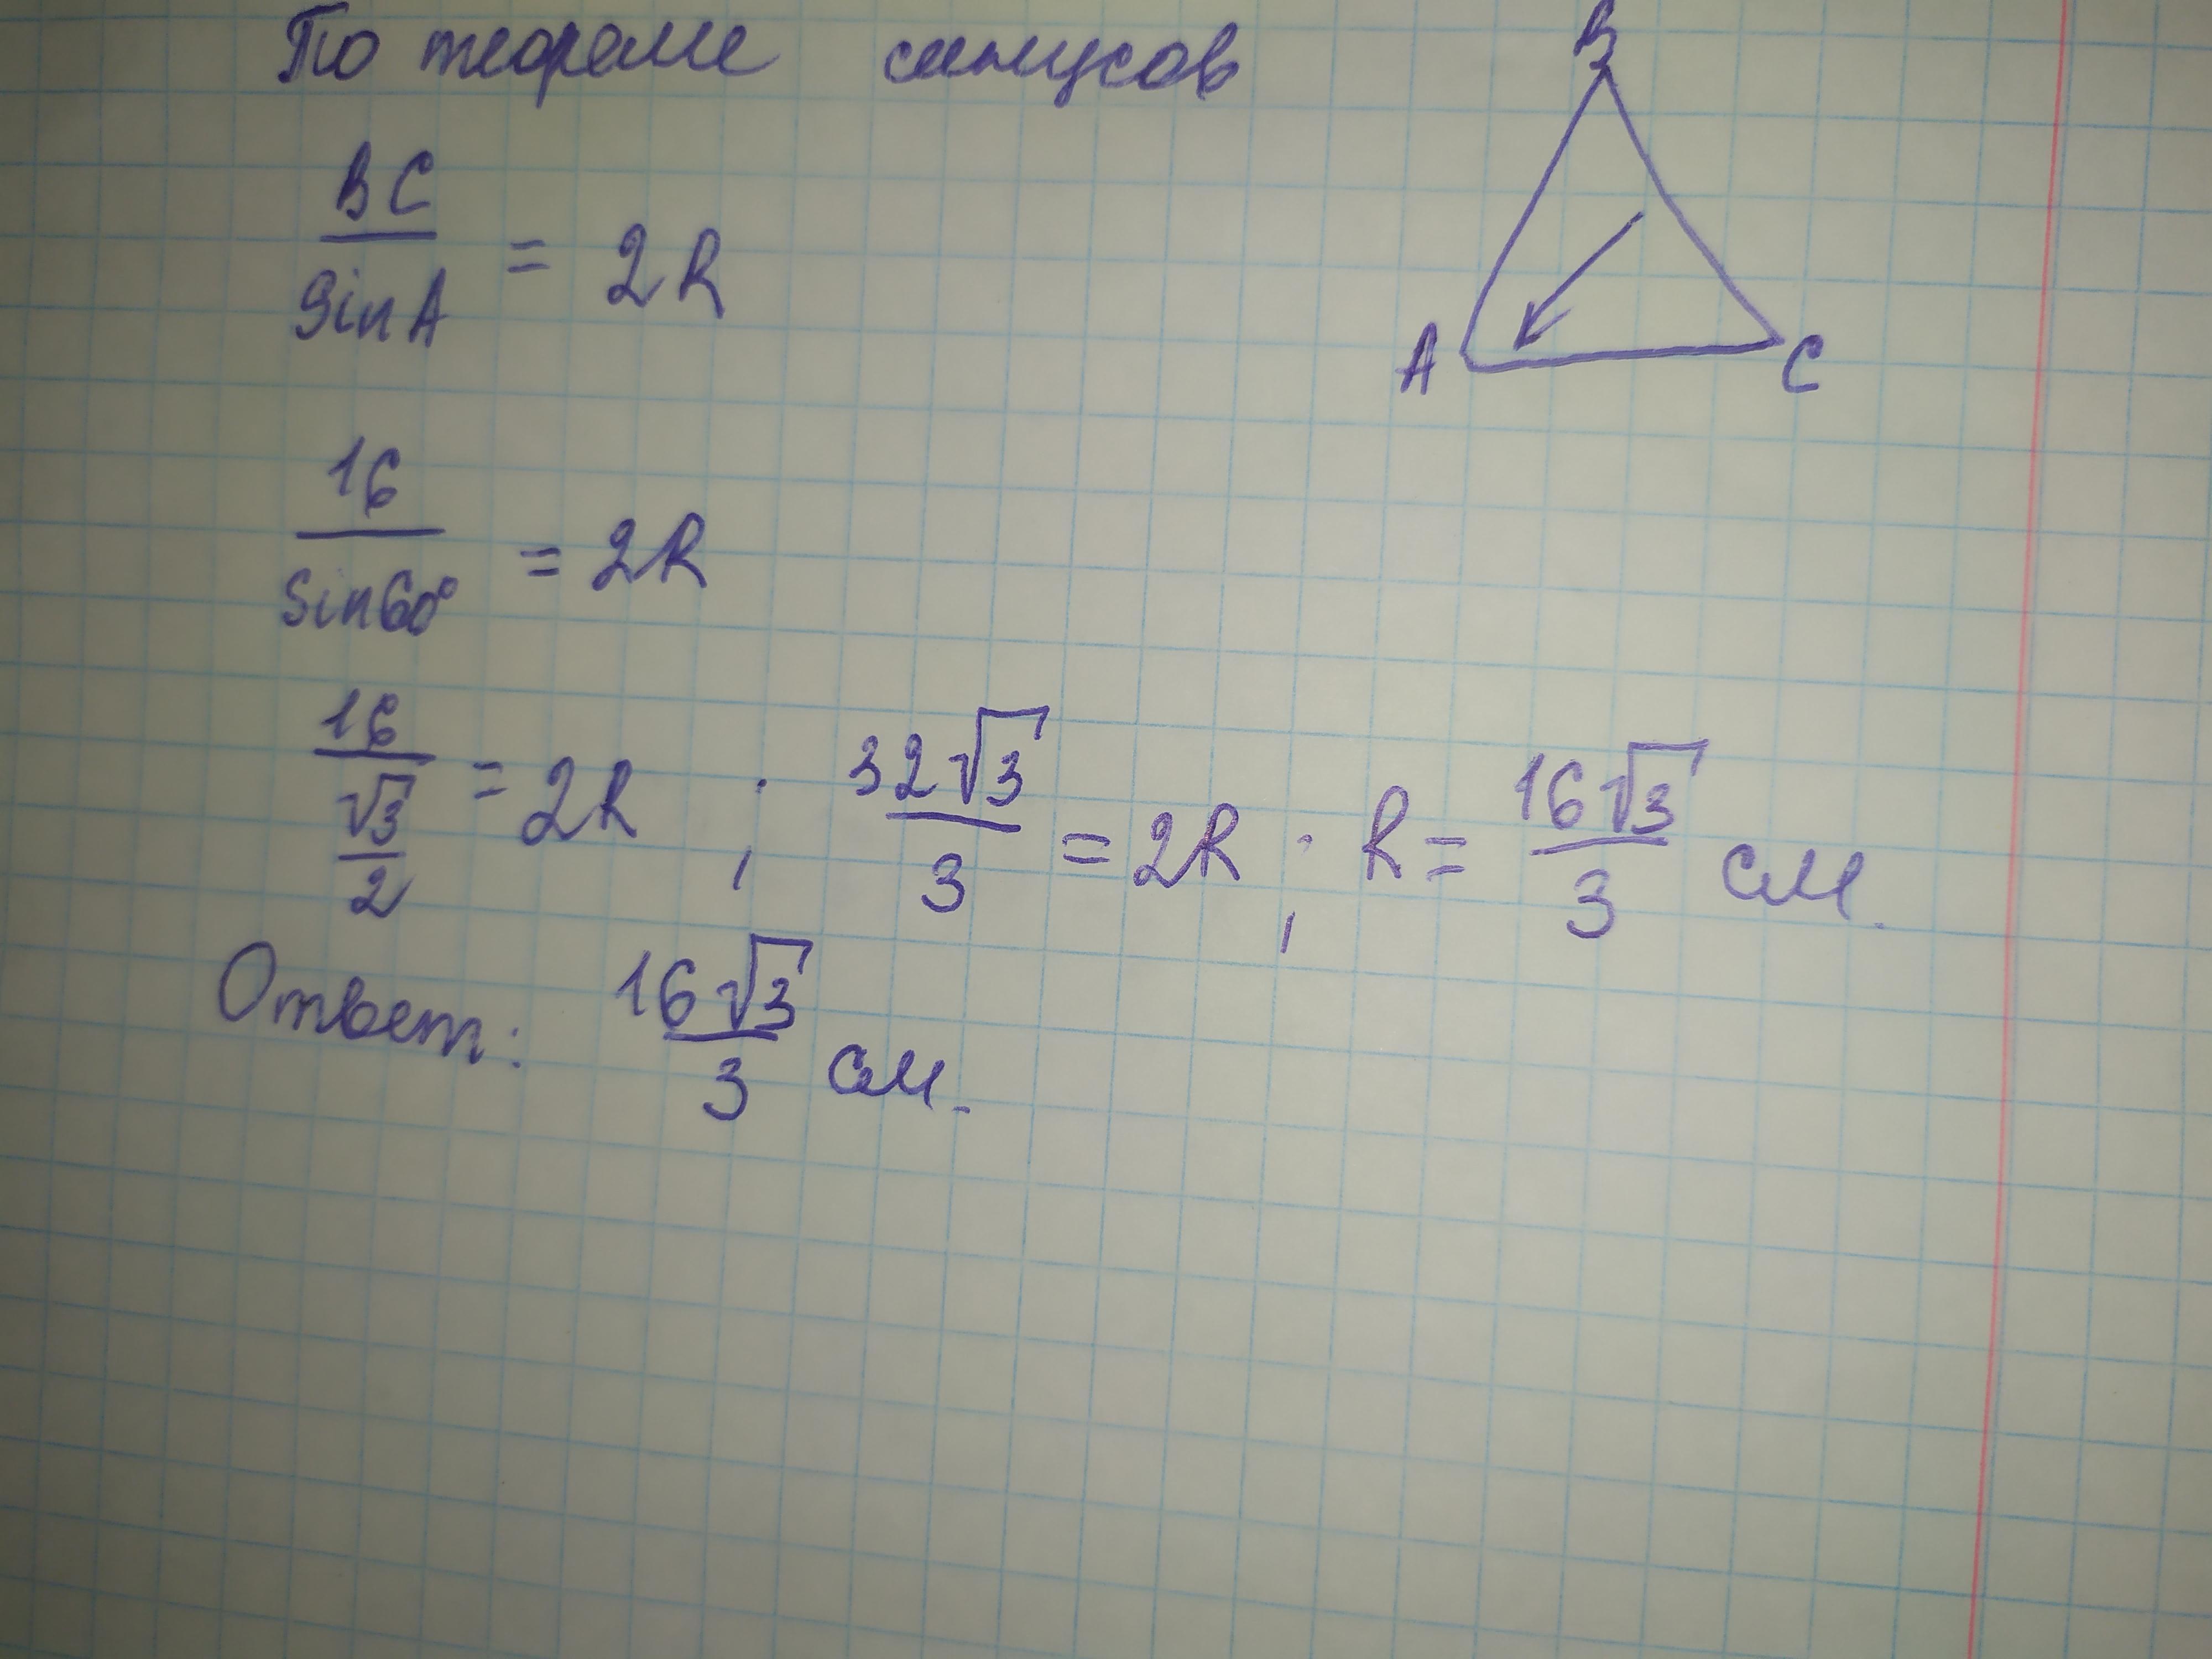 По теореме синусов
B
BC/sinA = 2R
A C
16/sin60° = 2R
16/(√3/2) = 2R ; 32√3/3 = 2R ; R = 16√3/3 см.
Ответ: 16√3/3 см.